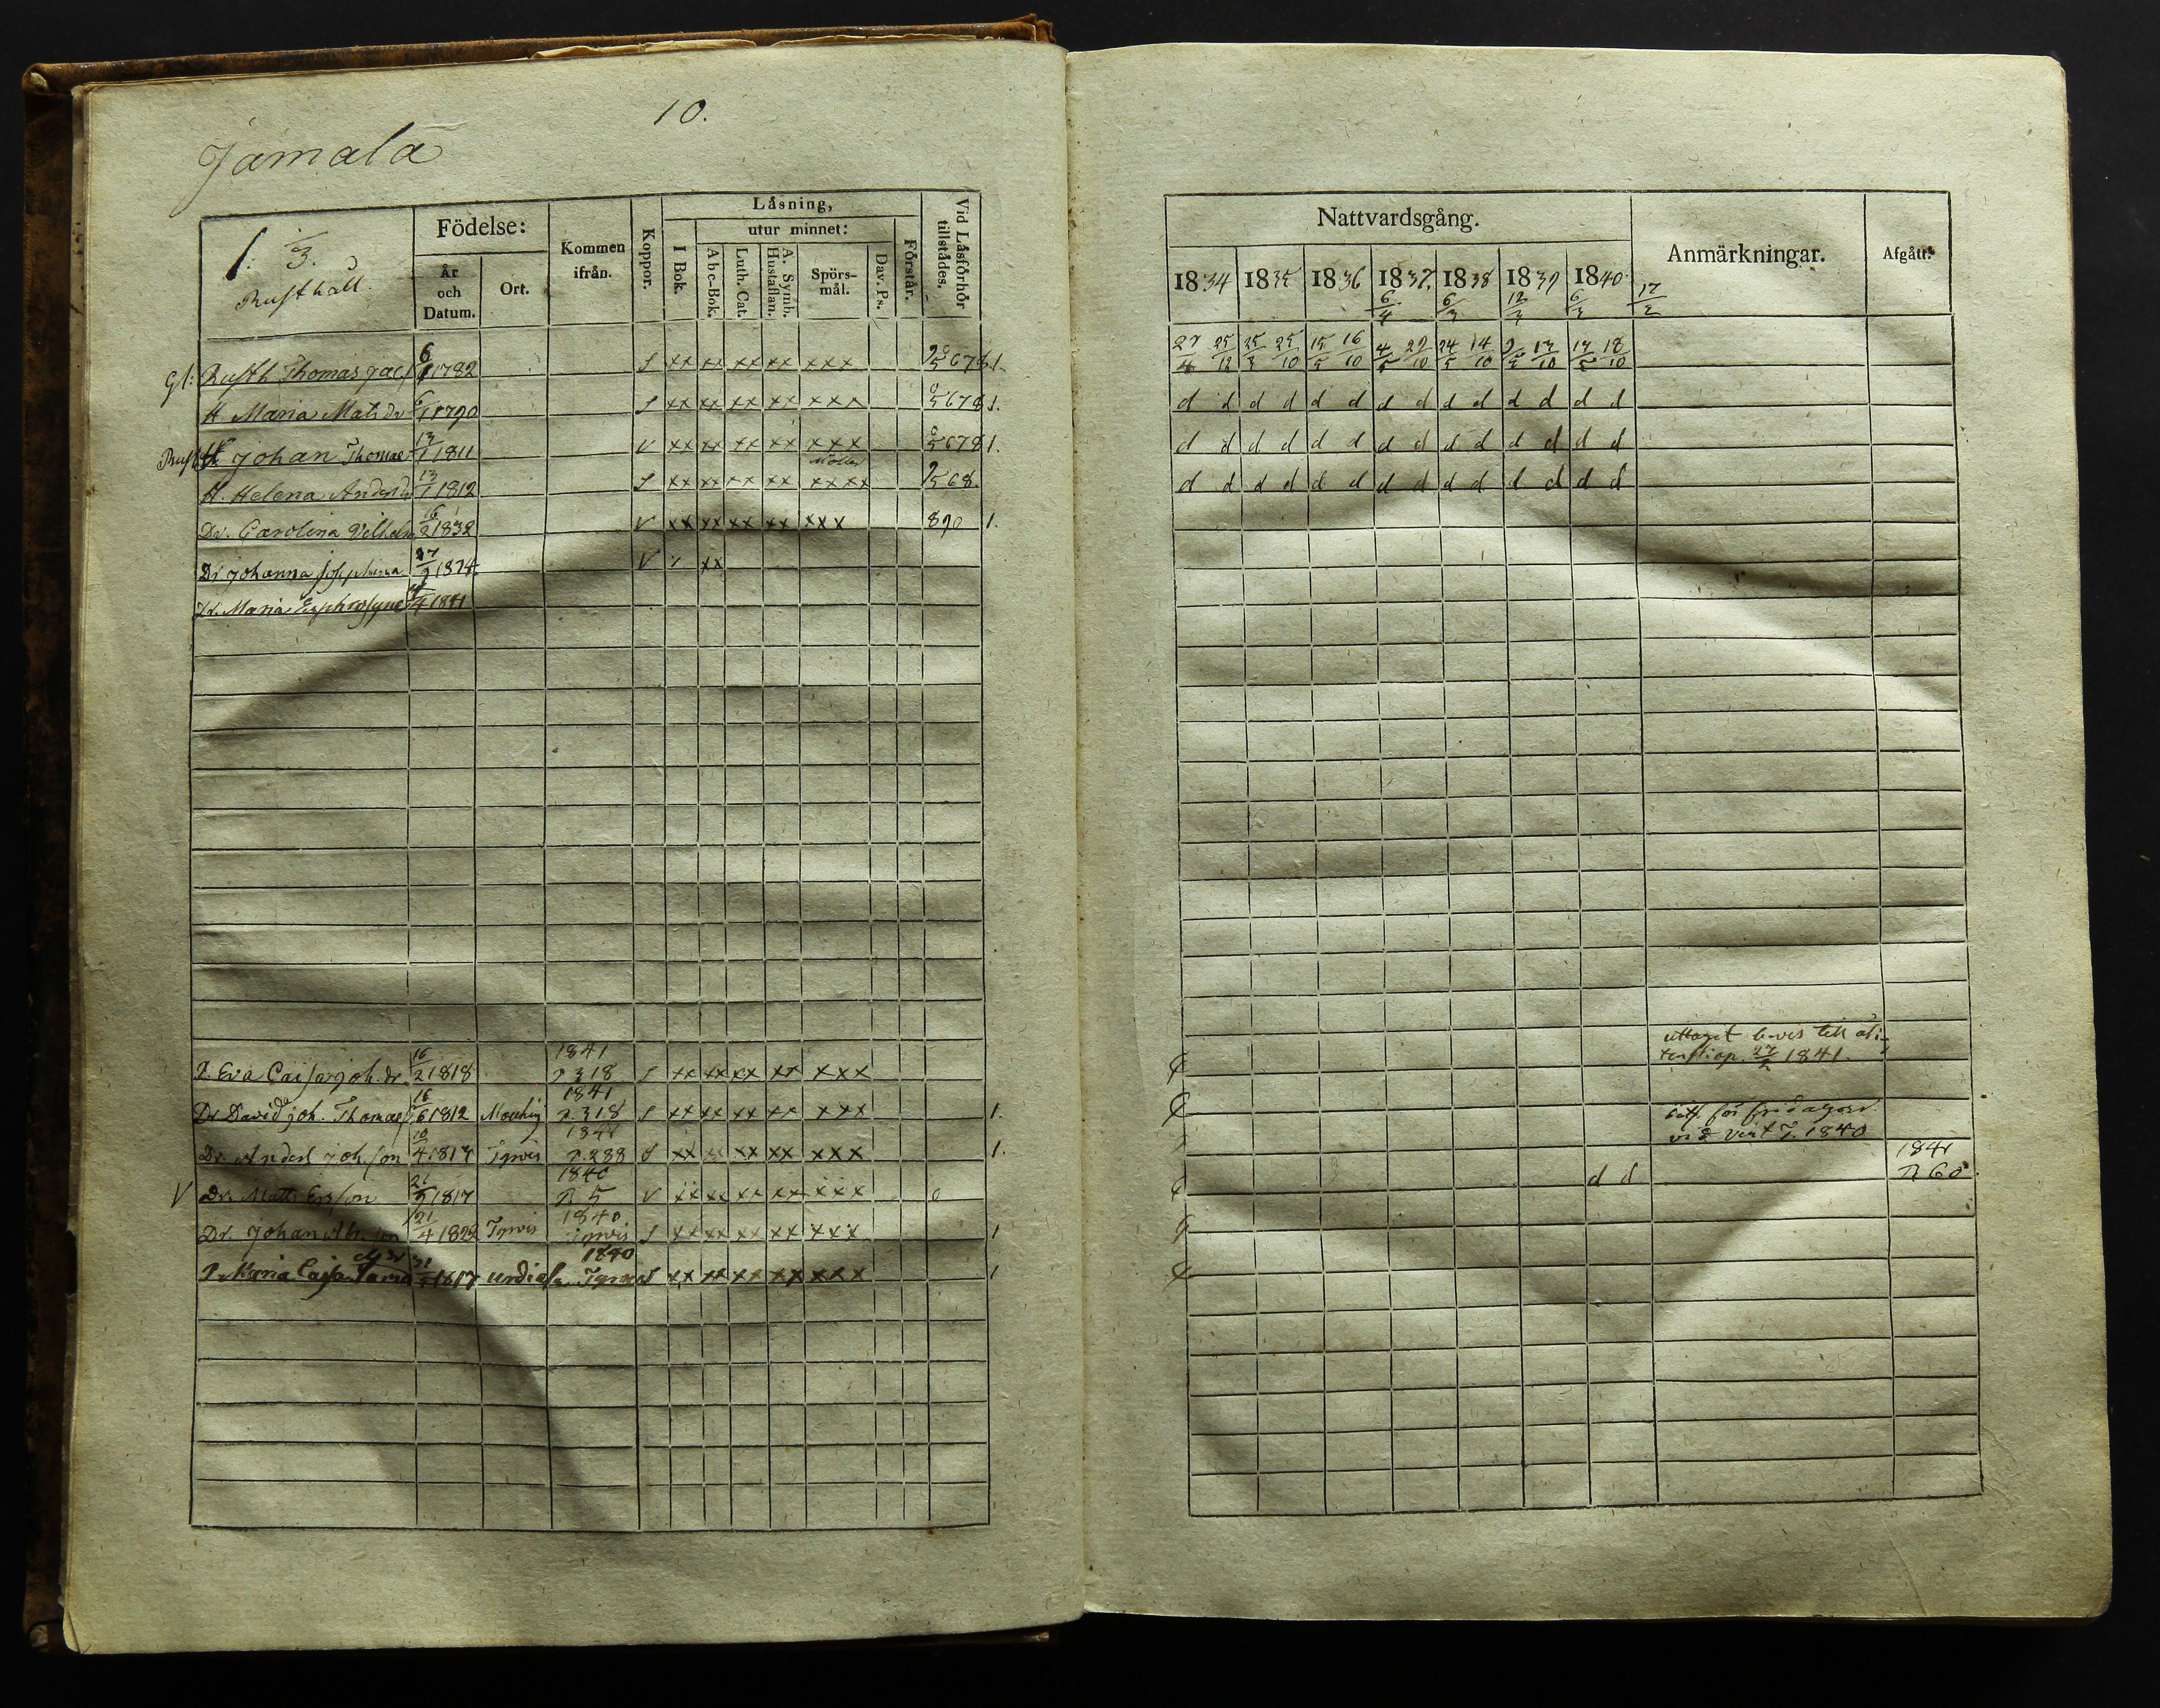 10.
Jamala
1: 3.
Rusthåll.
Födelse:
År och Datum.
Ort.
Kommen ifrån.
Koppor.
Läsning,
I Bok.
utur minnet:
Abc-Bok.
Luth. Cat.
A. Symb. Hustaflan.
Spörs-mål.
Dav. Ps.
Förstår.
Vid Läsförhör tillstädes.
Gl: Rusth Thomas Jac 6/1 1782 S xx xx xx xx xxx 5678 1.
H Maria Mats dr 1790 S xx xx xx xx xxx 5678 1.
Rusth Johan Thomae 13/1 1811 V xx xx xx xx xxx 5678 1.
H. Helena Anders dr 13/1 1812 S xx xx xx xx xxxx 568.
Dr. Carolina Vilhelm 16/2 1832 V xx xx xx xx xxx 890 1.
Dr Johanna Josephina 27 1834 V xx
Dr. Maria Euphrosyne 4 1841
P. Eva Caisa Joh. dr. 16/2 1818 1841 p 318 S xx xx xx xx xxx
Dr David Joh. Thomae 16/6 1812 1841 p. 318 S xx xx xx xx xxx 1.
Dr. Anders Joh.son 10/4 1817 Tyrvis 1841 p. 288 S xx xx xx xx xxx 1.
V Dr. Matts Ersson 21/9 1817 1840 p. 5 V xx xx xx xx xxx 0
Dr. Johan Abr.son 21/4 1822 Tyrvis 1840 Tyrvis S xx xx xx xx xxx 1
P. Maria Cajsa 31 1817 1840 xx xx xx xx xxx 1
Nattvardsgång.
Anmärkningar.
Afgått:
1834 1835 1836 1837 1838 1839 1840
6/4 6/3 12/3 6/3 17/2
27/4 25/12 25/3 25/10 15/5 16/10 4/5 29/10 24/5 14/10 9/5 13/10 17/5 18/10
d d d d d d d d d d d d d d
d d d d d d d d d d d d d d
d d d d d d d d d d d d d d
uttaget bevis till
27/2 1841.
för fridagar
vid vint T. 1840
1841
d d p 60.